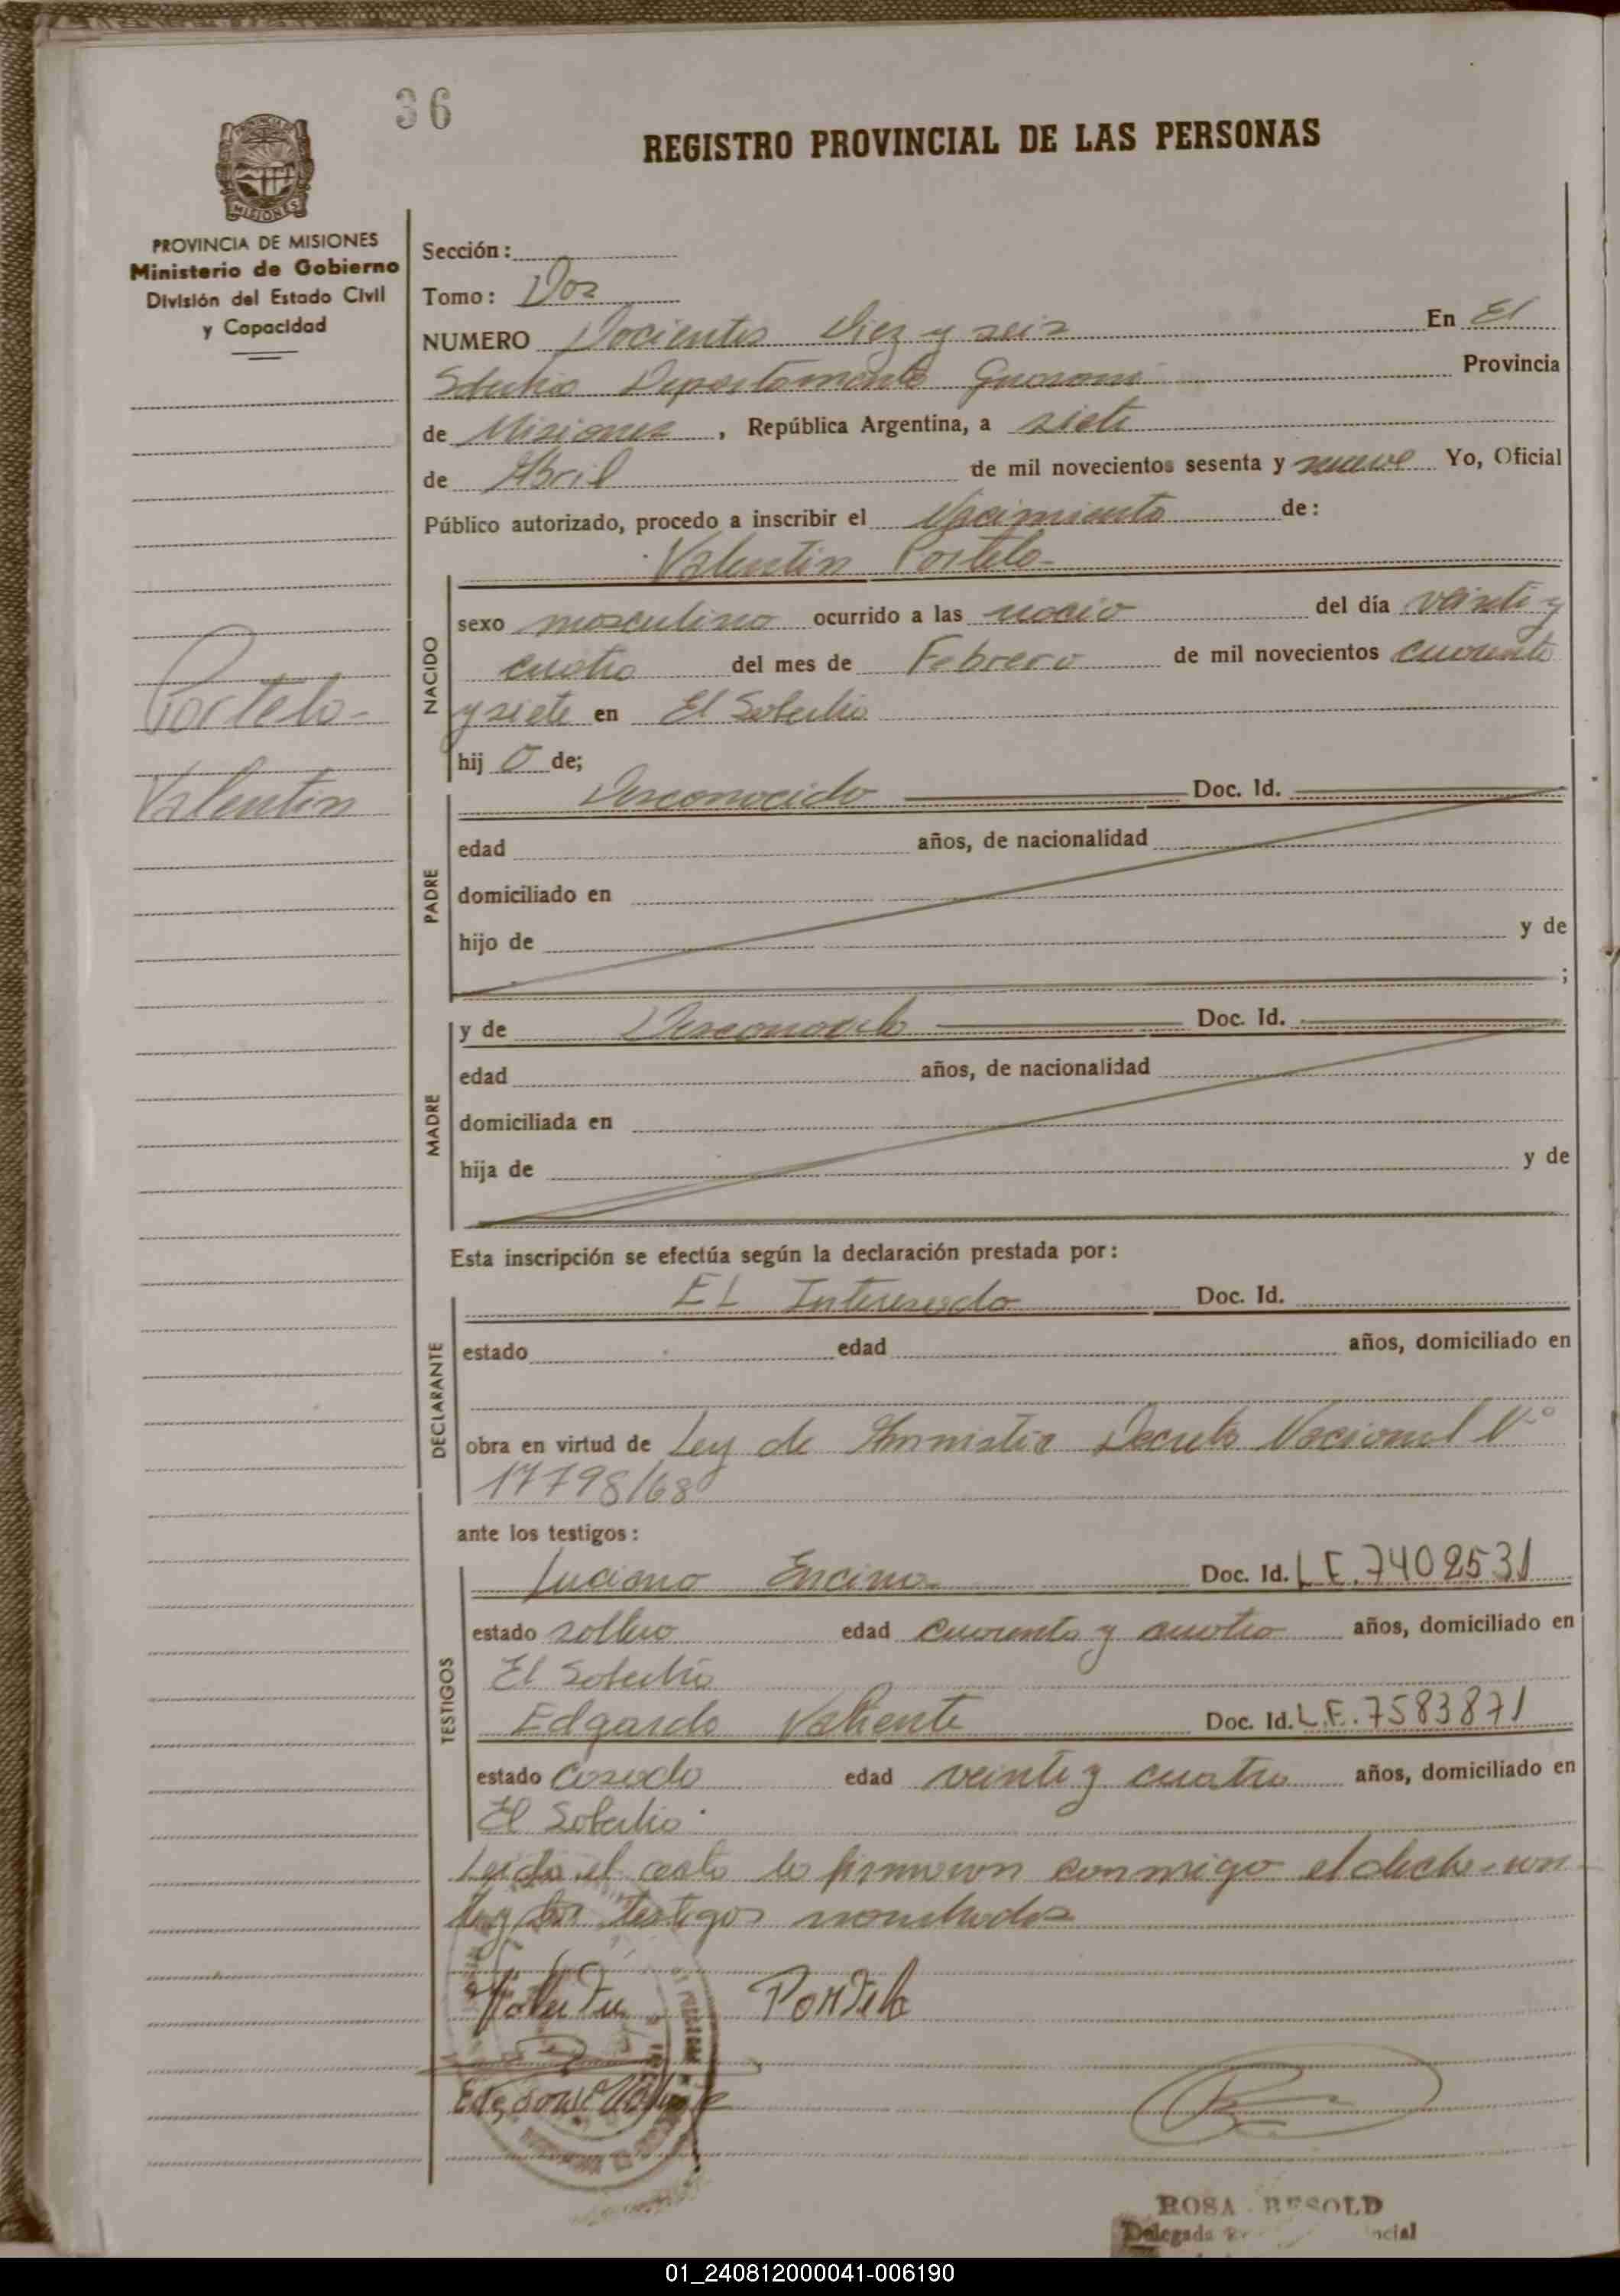 36
REGISTRO PROVINCIAL DE LAS PERSONAS
PROVINCIA DE MISIONES
Ministerio de Gobierno
División del Estado Civil
y Capacidad
Sección:
Tomo: Dos
NUMERO Docientos diez y seis En El
Soberbio Departamento Guarani Provincia
de Misiones, República Argentina, a siete
de Abril de mil novecientos sesenta y nueve Yo, Oficial
Público autorizado, procedo a inscribir el Nacimiento de:
Valentin Portela
NACIDO
sexo masculino ocurrido a las nació del día veinti y
cuatro del mes de Febrero de mil novecientos cuarenta
y siete en El Soberbio
hij o de;
Portela
Valentin
PADRE
Desconocido Doc. Id.
edad años, de nacionalidad
domiciliado en
hijo de y de
;
MADRE
y de Desconocido Doc. Id.
edad años, de nacionalidad
domiciliada en
hija de y de
Esta inscripción se efectúa según la declaración prestada por:
DECLARANTE
EL Interesado Doc. Id.
estado edad años, domiciliado en
obra en virtud de Ley de Amnistia Decreto Nacional N°
17798/68
ante los testigos:
TESTIGOS
Luciano Encina Doc. Id. L E. 7402531
estado soltero edad cuarenta y cuatro años, domiciliado en
El Soberbio
Edgardo Valiente Doc. Id. L.E. 7583871
estado Casado edad veinti y cuatro años, domiciliado en
El Soberbio
Leida el acta la firmaron conmigo el
y los testigos nombrados
Valentin Portela
ROSA BESOLD
Delegada
01_240812000041-006190